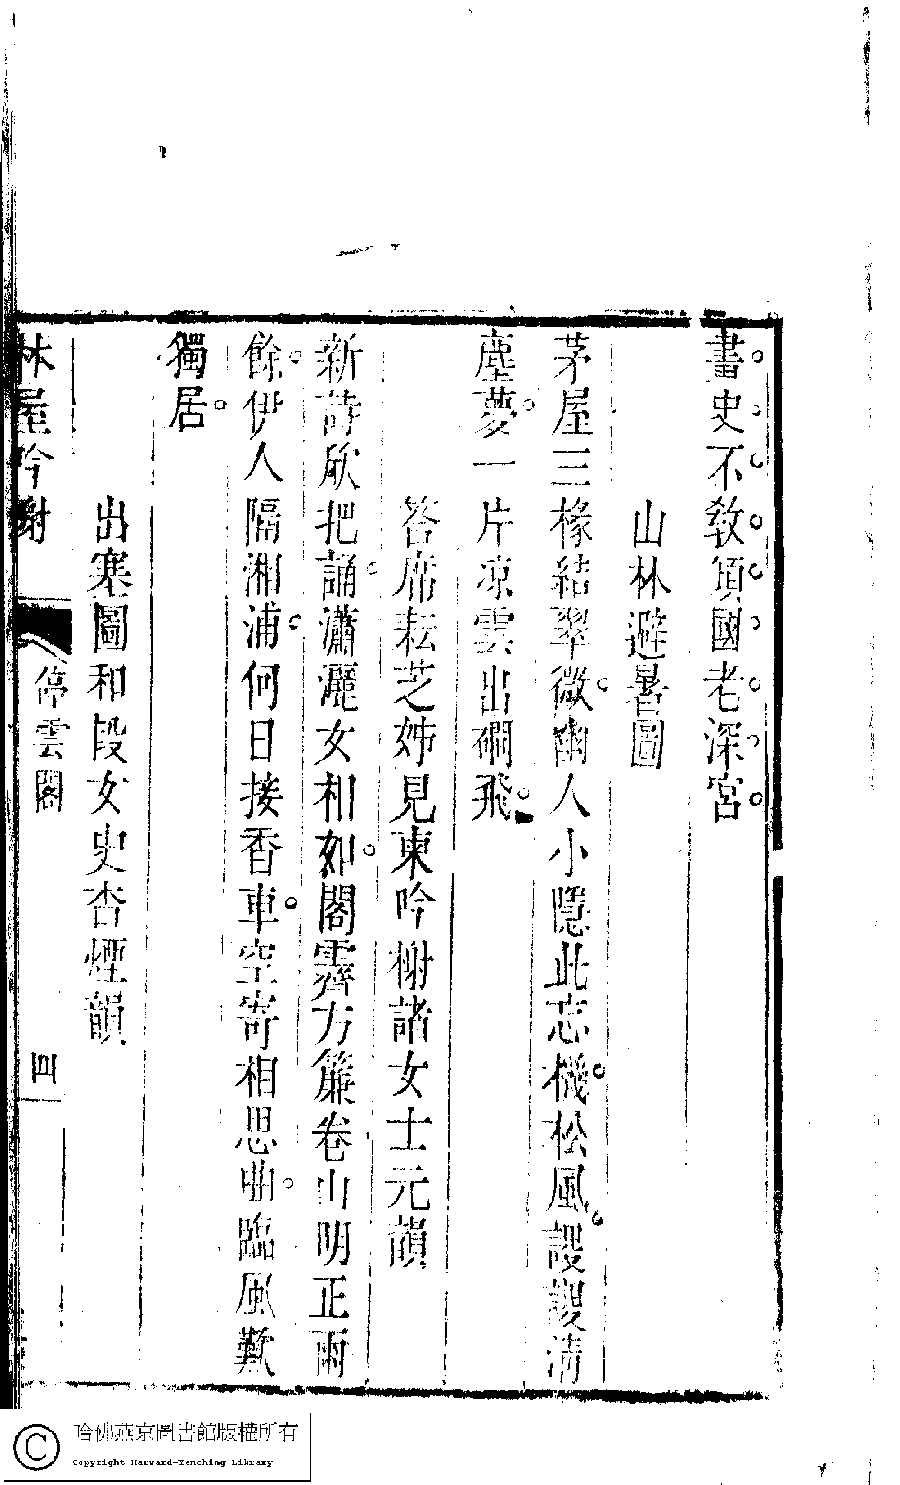 畫史不敎頂國老深宮
山林避暑圖
茅屋三椽結翠微幽人小隱此忘機松風謖謖淸
塵夢一片凉雲出磵飛
答席耘芝姊見柬吟榭諸女士元韻
新詩欣把誦瀟灑女相如閣霽方簾卷山明正雨
餘伊人隔湘浦何日接香車空寄相思曲臨風歎
獨居
出塞圖和段女史杏煙韻
林屋吟榭
停雲閣
四
哈佛燕京圖書館版權所有
Copyright Harvard-Yenching Library